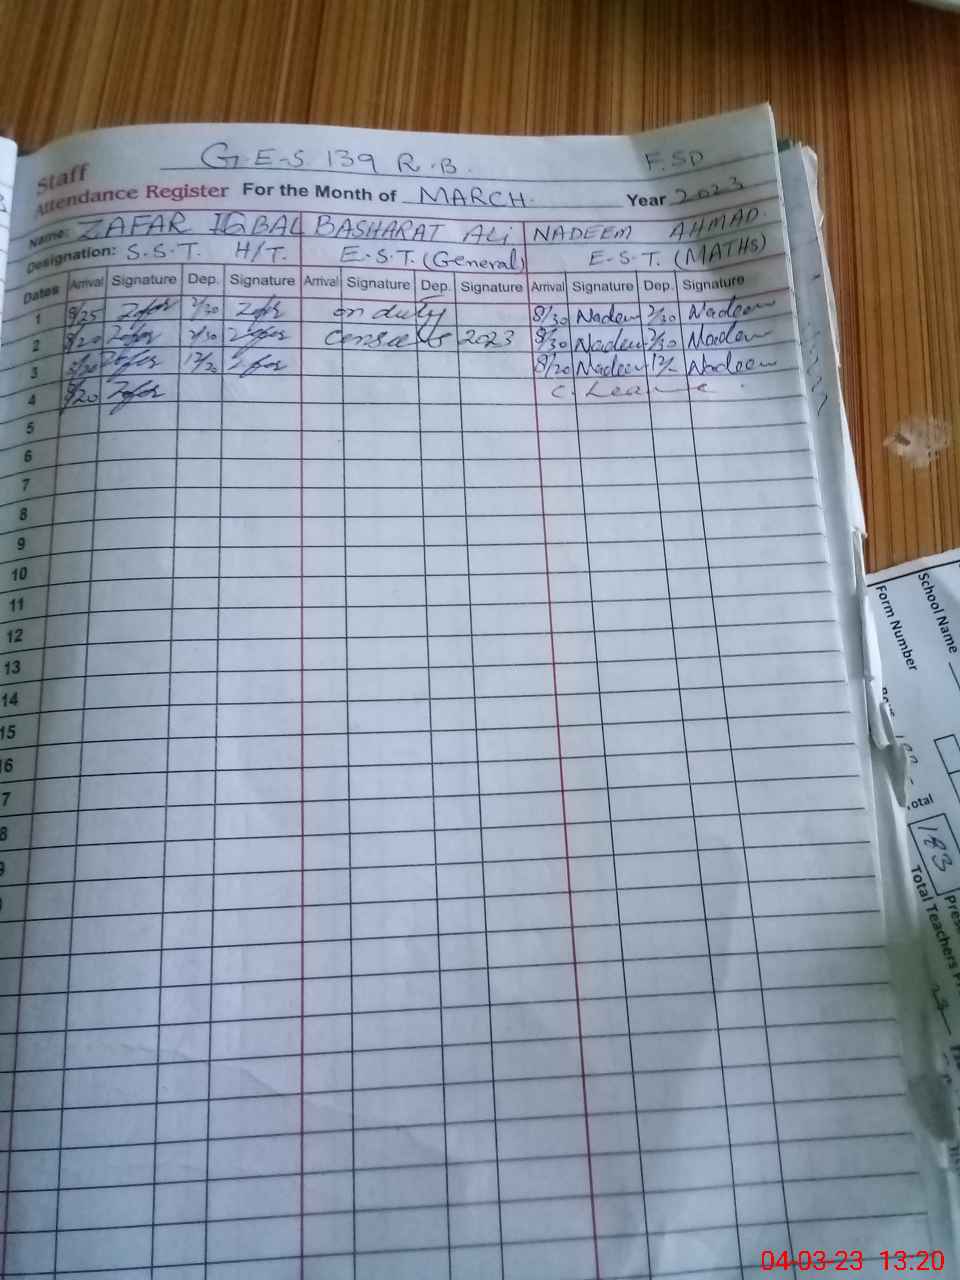 G.E.S. 139 R.B. F.SD
Staff
Attendance Register For the Month of MARCH. Year 2023
Name: ZAFAR IQBAL BASHARAT ALi NADEEM AHMAD.
Designation: S.S.T. H/T. E.S.T. (General) E.S.T. (MATHS)
Dates Arrival Signature Dep. Signature Arrival Signature Dep. Signature Arrival Signature Dep. Signature
1 8/25 Zafar 2/30 Zafar on duty 8/30 Nadeem 2/30 Nadeem
2 8/20 Zafar 2/30 Zafar census 2023 8/30 Nadeem 2/30 Nadeem
3 8/20 Zafar 12/20 Zafar 8/20 Nadeem 12/ Nadeem
4 8/20 Zafar C. Leave.
5
6
7
8
9
10
11
12
13
14
15
16
7
8
9
School Name
Form Number
otal
183
Total Teachers
04-03-23 13:20